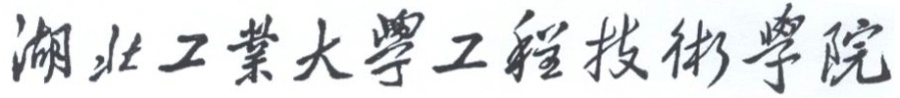 湖北工業大學工程技術學院